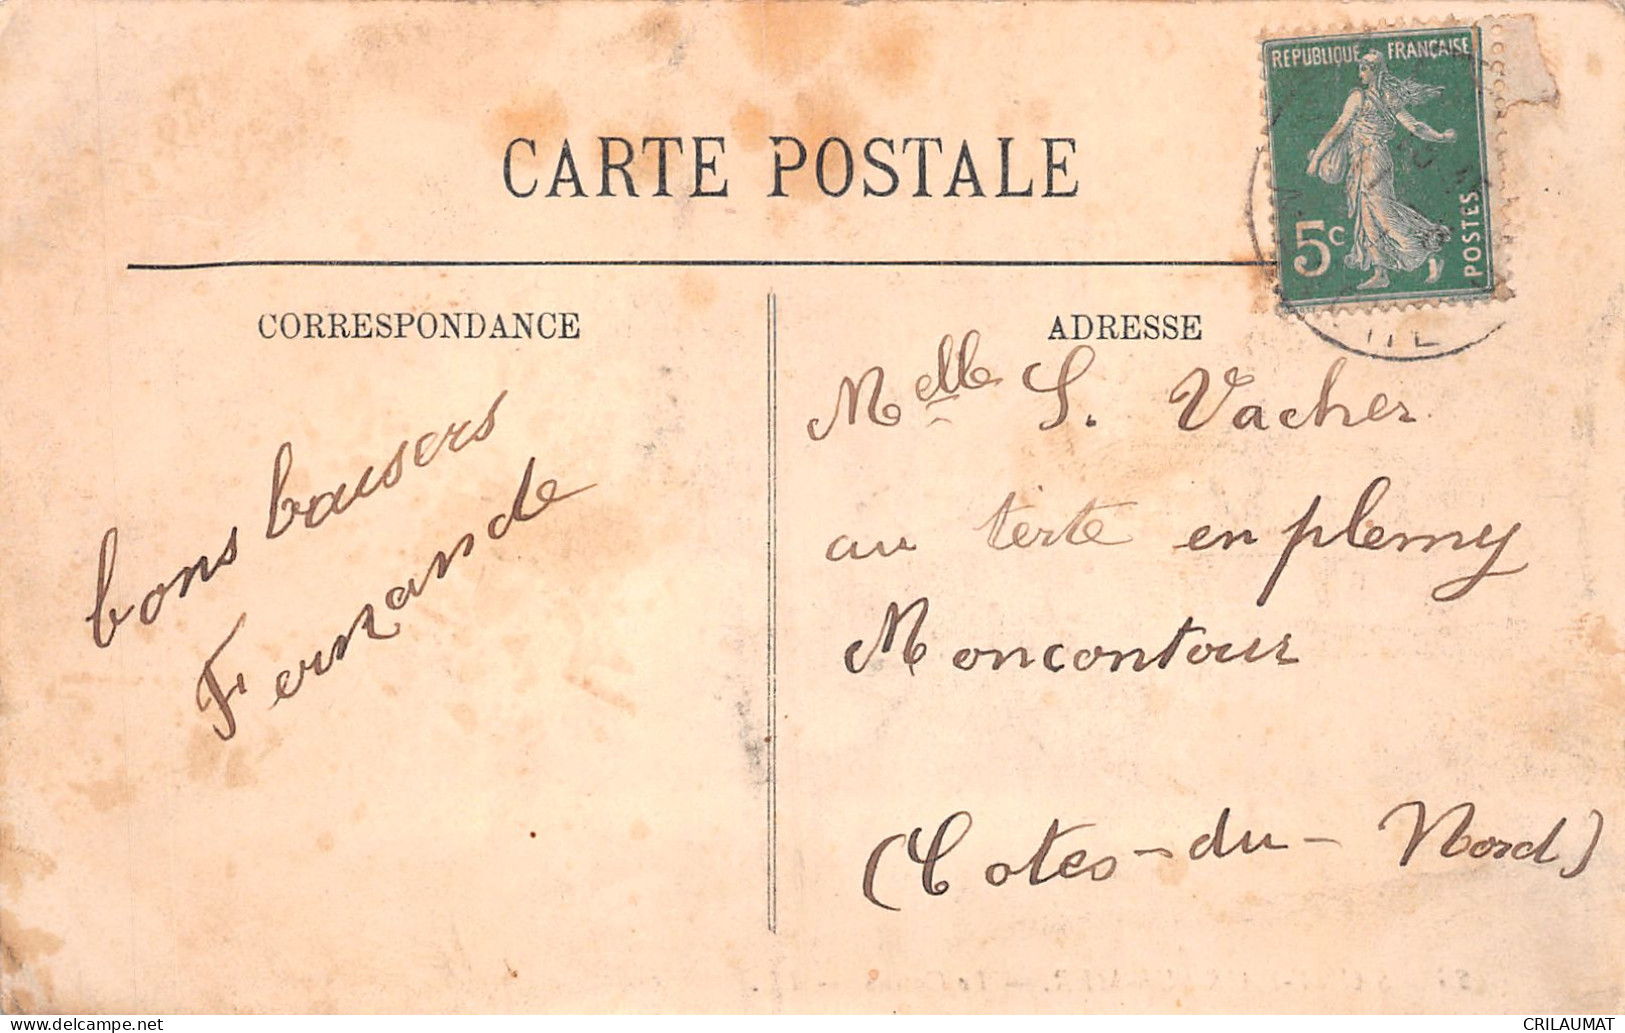 CARTE POSTALE
REPUBLIQUE FRANÇAISE
5c
POSTES
CORRESPONDANCE
bons baisers
Fernande
ADRESSE
Melle S. Vacher
au terte en plemy
Moncontour
(Cotes-du-Nord)
CRILAUMAT